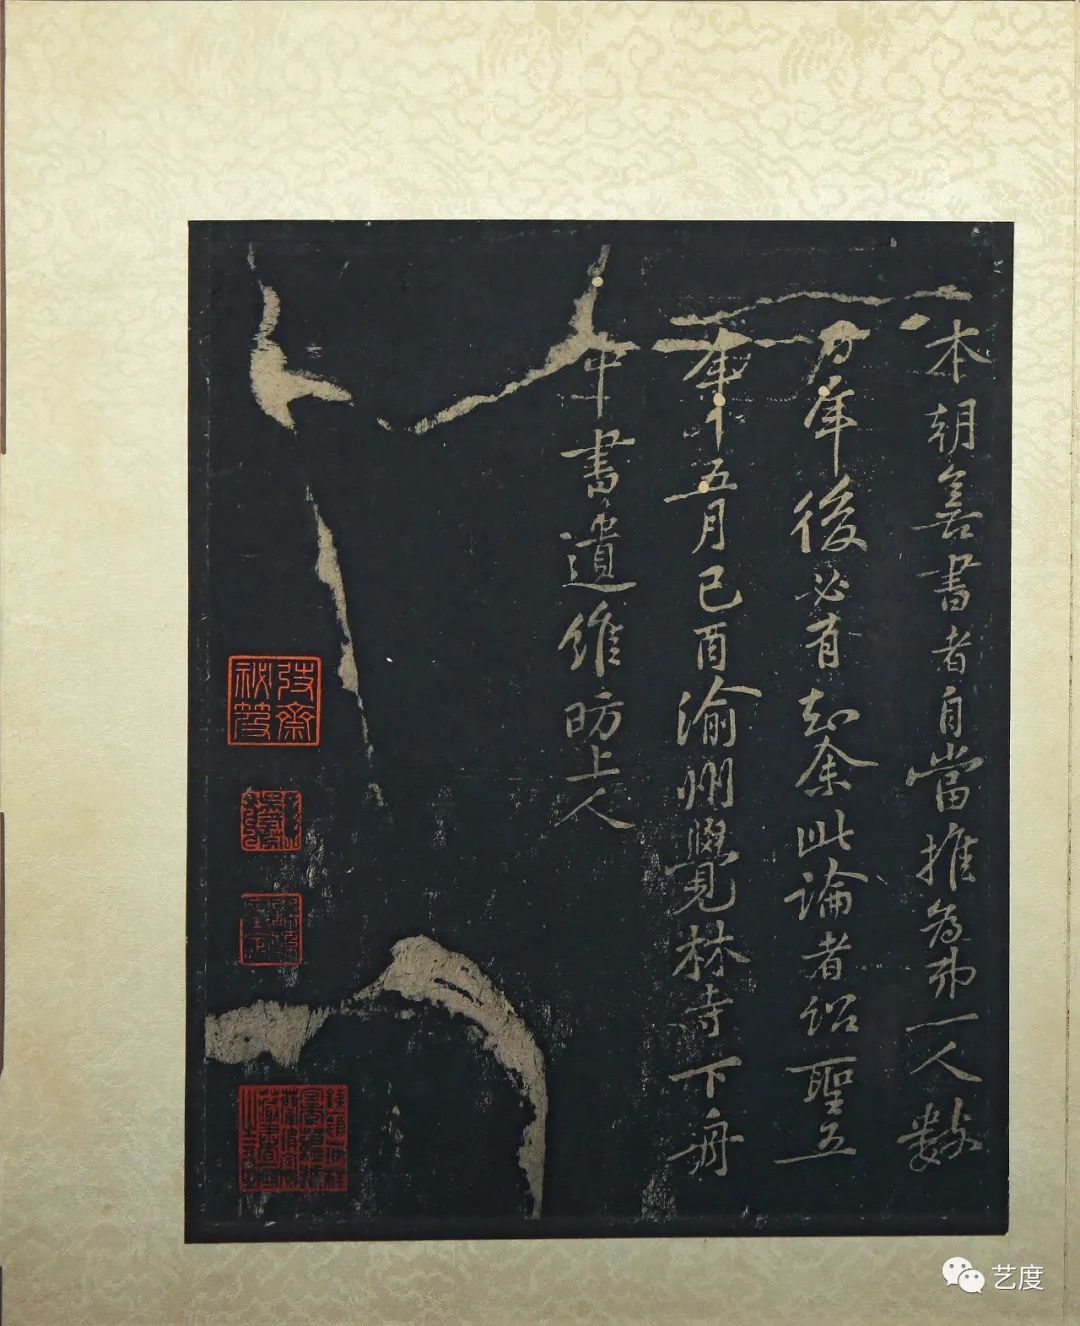 本朝善書者自當推為弟一人數
百年後必有知余此論者紹聖五
年五月己酉渝州覺林寺下舟
中書遺維昉上人
艺度